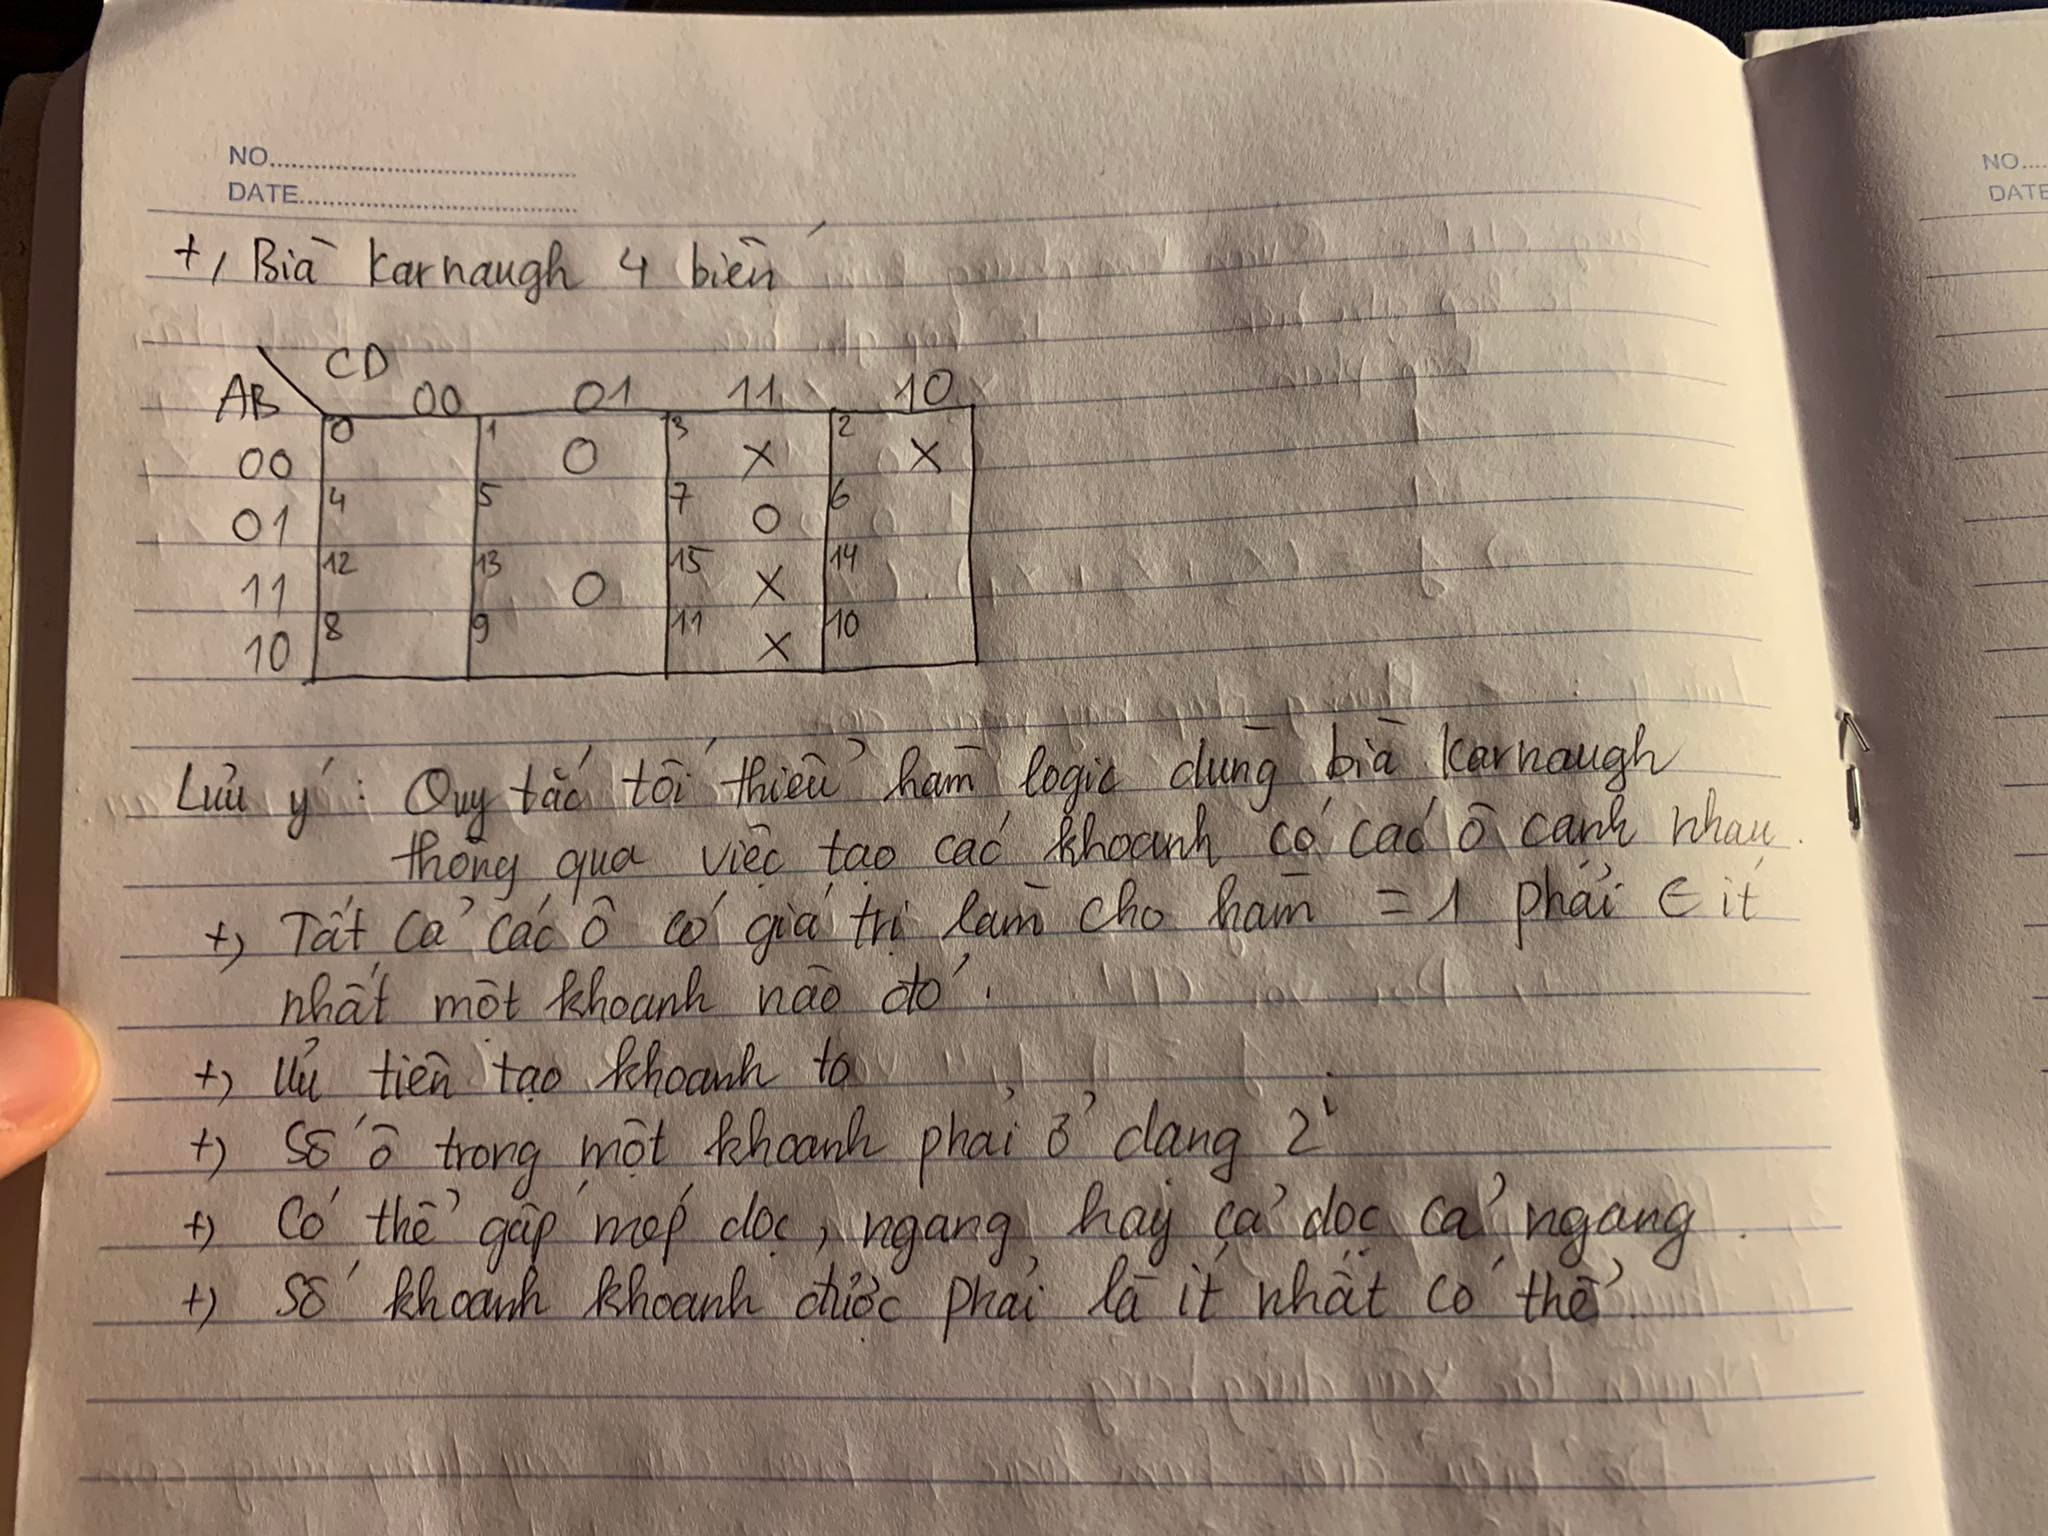 NO.............................................
DATE.............................................
NO....
DATE
+, Bìa Karnaugh 4 biến
CD
AB 00 01 11 10
00 0 1 0 3 X 2 X
01 4 5 7 0 6
11 12 13 0 15 X 14
10 8 9 11 X 10
Lưu ý: Quy tắc tối thiểu hàm logic dùng bìa Karnaugh
thông qua việc tạo các khoanh có các ô cạnh nhau.
+) Tất cả các ô có giá trị làm cho hàm = 1 phải ∈ ít
nhất một khoanh nào đó.
+) Ưu tiên tạo khoanh to
+) Số ô trong một khoanh phải ở dạng 2ⁱ
+) Có thể gấp mép dọc, ngang hay cả dọc cả ngang.
+) Số khoanh khoanh được phải là ít nhất có thể.